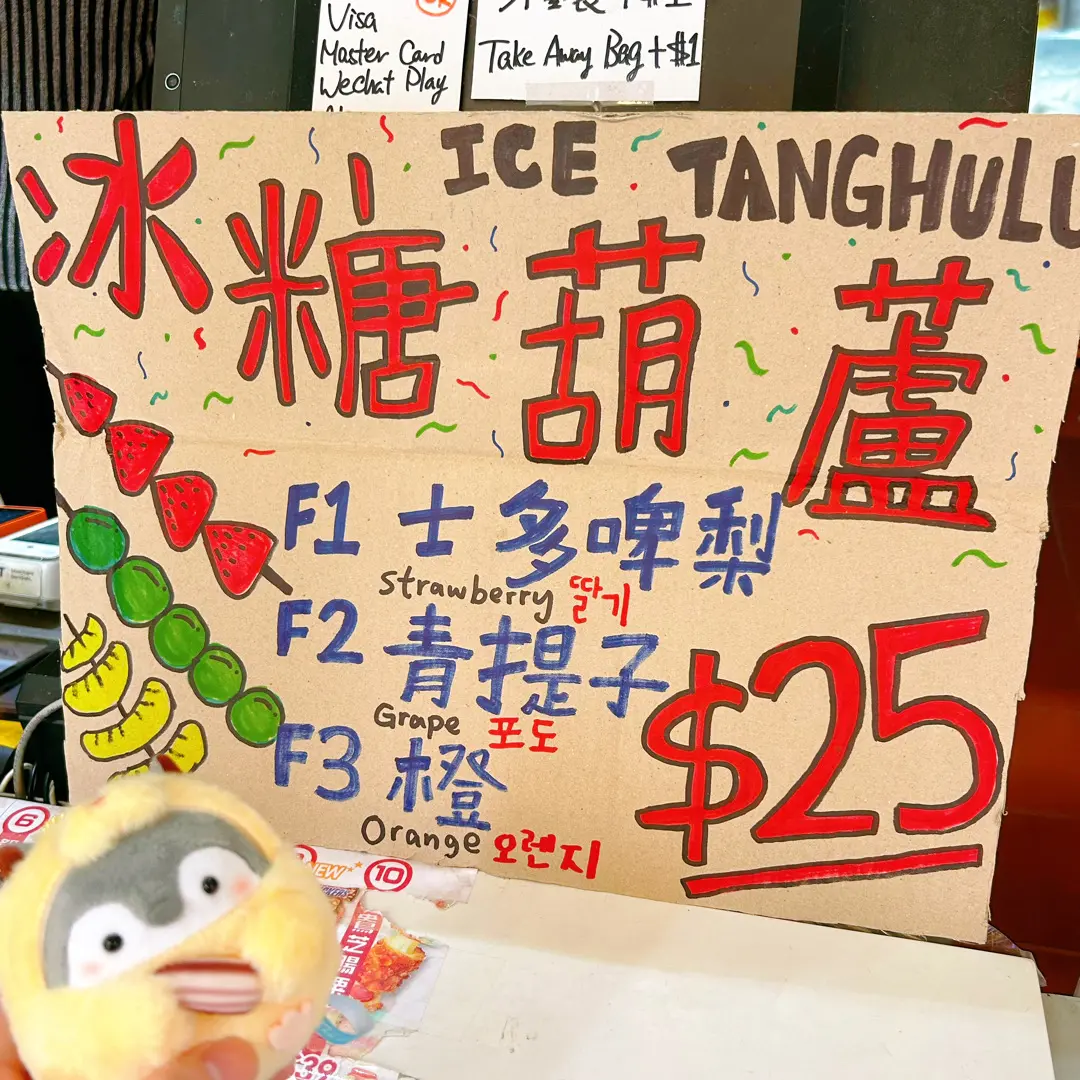 Visa
Master Card
Wechat Play
Take Away Bag + $1
ICE TANGHULU
冰糖葫蘆
F1 士多啤梨
strawberry 딸기
F2 青提子
Grape 포도
F3 橙
Orange 오렌지
$25
6
NEW
10